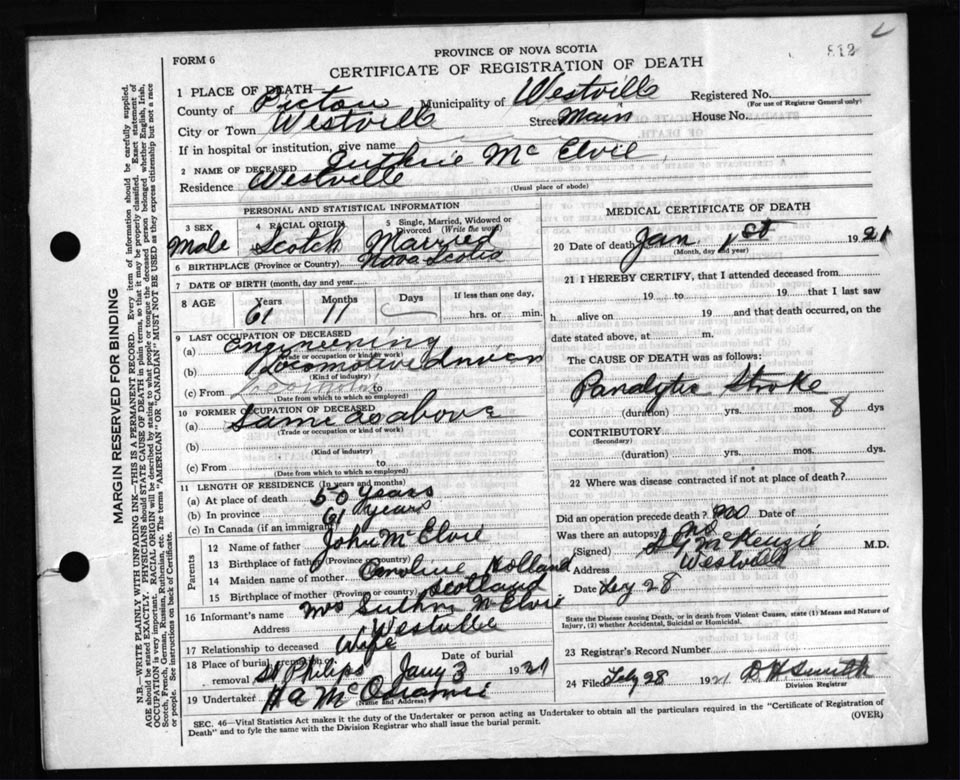 812
PROVINCE OF NOVA SCOTIA
FORM 6
CERTIFICATE OF REGISTRATION OF DEATH
1 PLACE OF DEATH—
County of Pictou Municipality of Westville Registered No.
(For use of Registrar General only)
City or Town Westville Street Main House No.
If in hospital or institution, give name
2 NAME OF DECEASED Guthrie Mc Elvie
Residence Westville
(Usual place of abode)
PERSONAL AND STATISTICAL INFORMATION
3 SEX Male
4 RACIAL ORIGIN Scotch
5 Single, Married, Widowed or Divorced (Write the word) Married
6 BIRTHPLACE (Province or Country) Nova Scotia
7 DATE OF BIRTH (month, day and year)
8 AGE Years 61 Months 11 Days
If less than one day,
hrs. or min.
9 LAST OCCUPATION OF DECEASED
(a) Engineering
(Trade or occupation or kind of work)
(b) Locomotive driver
(Kind of industry)
(c) From to
(Date from which to which so employed)
10 FORMER OCCUPATION OF DECEASED
(a) Same as above
(Trade or occupation or kind of work)
(b)
(Kind of industry)
(c) From to
(Date from which to which so employed)
11 LENGTH OF RESIDENCE (In years and months)
(a) At place of death 50 years
(b) In province 61 years
(c) In Canada (if an immigrant)
Parents
12 Name of father John McElvie
13 Birthplace of father (Province or country)
14 Maiden name of mother Caroline Holland
15 Birthplace of mother (Province or country) Scotland
16 Informant's name Mrs Guthrie McElvie
Address Westville
17 Relationship to deceased Wife
18 Place of burial, cremation or removal St Philips Date of burial Jany 3 1921
19 Undertaker H A Mc
(Name and Address)
MEDICAL CERTIFICATE OF DEATH
20 Date of death Jan 1st 1921
(Month, day and year)
21 I HEREBY CERTIFY, that I attended deceased from
19 to 19 that I last saw
h alive on 19 and that death occurred, on the
date stated above, at m.
The CAUSE OF DEATH was as follows:
Paralytic Stroke
(duration) yrs. mos. 8 dys
CONTRIBUTORY
(Secondary)
(duration) yrs. mos. dys.
22 Where was disease contracted if not at place of death?
Did an operation precede death? no Date of
Was there an autopsy? no
(Signed) McKenzie M.D.
Address Westville
Date Feby 28
State the Disease causing Death, or in death from Violent Causes, state (1) Means and Nature of
Injury, (2) whether Accidental, Suicidal or Homicidal.
23 Registrar's Record Number
24 Filed Feby 28 1921 D H Smith
Division Registrar
SEC. 46—Vital Statistics Act makes it the duty of the Undertaker or person acting as Undertaker to obtain all the particulars required in the "Certificate of Registration of
Death" and to fyle the same with the Division Registrar who shall issue the burial permit.
(OVER)
MARGIN RESERVED FOR BINDING
N.B.—WRITE PLAINLY WITH UNFADING INK—THIS IS A PERMANENT RECORD. Every item of information should be carefully supplied.
AGE should be stated EXACTLY. PHYSICIANS should STATE CAUSE OF DEATH in plain terms, so that it may be properly classified. Exact statement of
OCCUPATION is very important. RACIAL ORIGIN will be described by stating to what people or tongue the deceased person belonged whether English, Irish,
Scotch, French, German, Russian, Ruthenian, etc. The terms "AMERICAN" or "CANADIAN" MUST NOT BE USED as they express citizenship but not a race
or people. See instructions on back of Certificate.